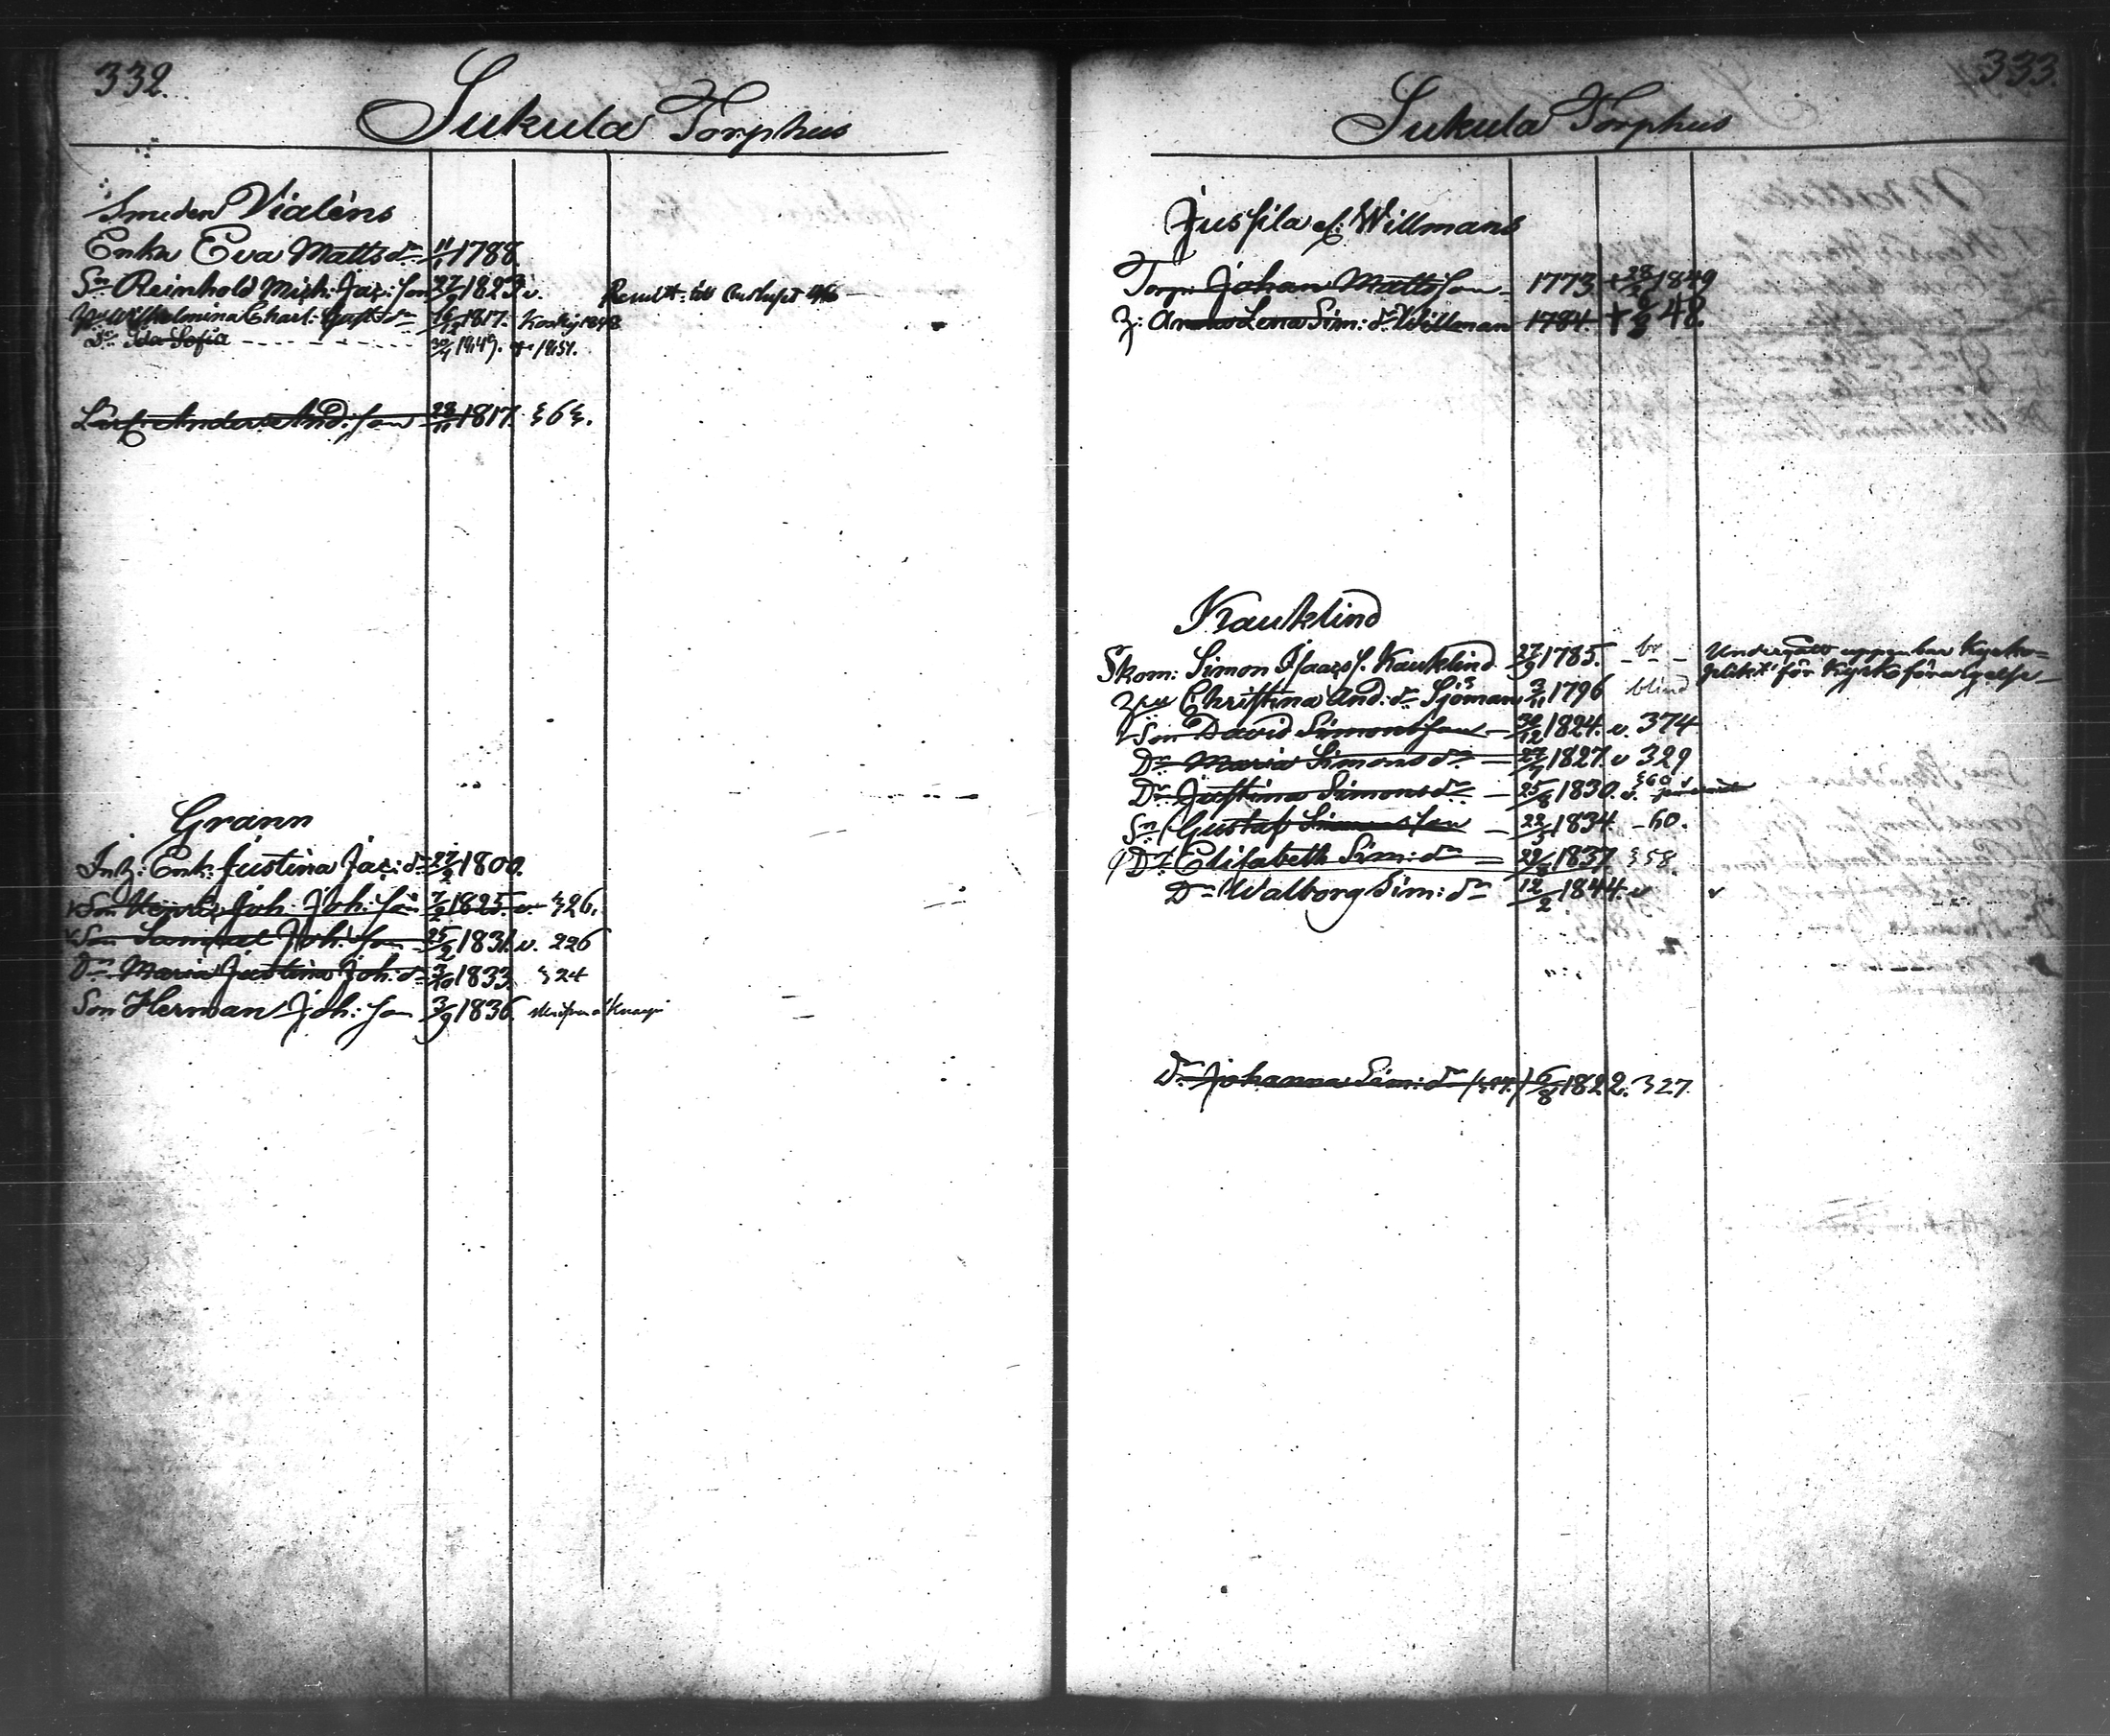 332.
Sukula Torphus
Smeden Vialéns
Enka Eva Mattsdr 11/11 1788.
Sn Reinhold Mich: Jac: son 27/9 1823. v.
Wilhelmina Charl: Gust: dr 16/12 1817. Koskis 1848
Dr Ida Sofia 30/4 1849. 1851.
Lärl: Anders And: son 28/11 1817. 363.
Grann
Inh: Enk. Justina Jac: dr 22/2 1800.
Son Henric Joh: Joh: son 7/2 1825. v. 326.
Son Samuel Joh: son 25/2 1831. v. 226
Dr Maria Justina Joh: dr 3/10 1833. 324
Son Herman Joh: son 3/9 1836.
333.
Sukula Torphus
Jussila el. Willmans
Torp: Johan Mattsson 1773 + 28/2 1849
H: Anna Lena Sim: dr Willman 1784. + 48.
Kauklind
Skom: Simon Isaacs s. Kauklind 27/9 1785. Undergått uppenbar Kyrko-
plikt för Kyrkoförargelse
Christina And: dr Sjöman 3/11 1796 blind
Son David Simonsson 30/12 1824. v. 374
Dr Maria Simonsdr 27/7 1827. v 329
Dr Justina Simonsdr 25/8 1830. v.
Sn Gustaf Simonsson 22/3 1834 - 60.
Dr Elisabeth Sim: dr 22/8 1837. 358.
Dr Walborg Sim: dr 12/2 1844. v v
Dr Johanna Sim: dr 6/8 1822. 327.